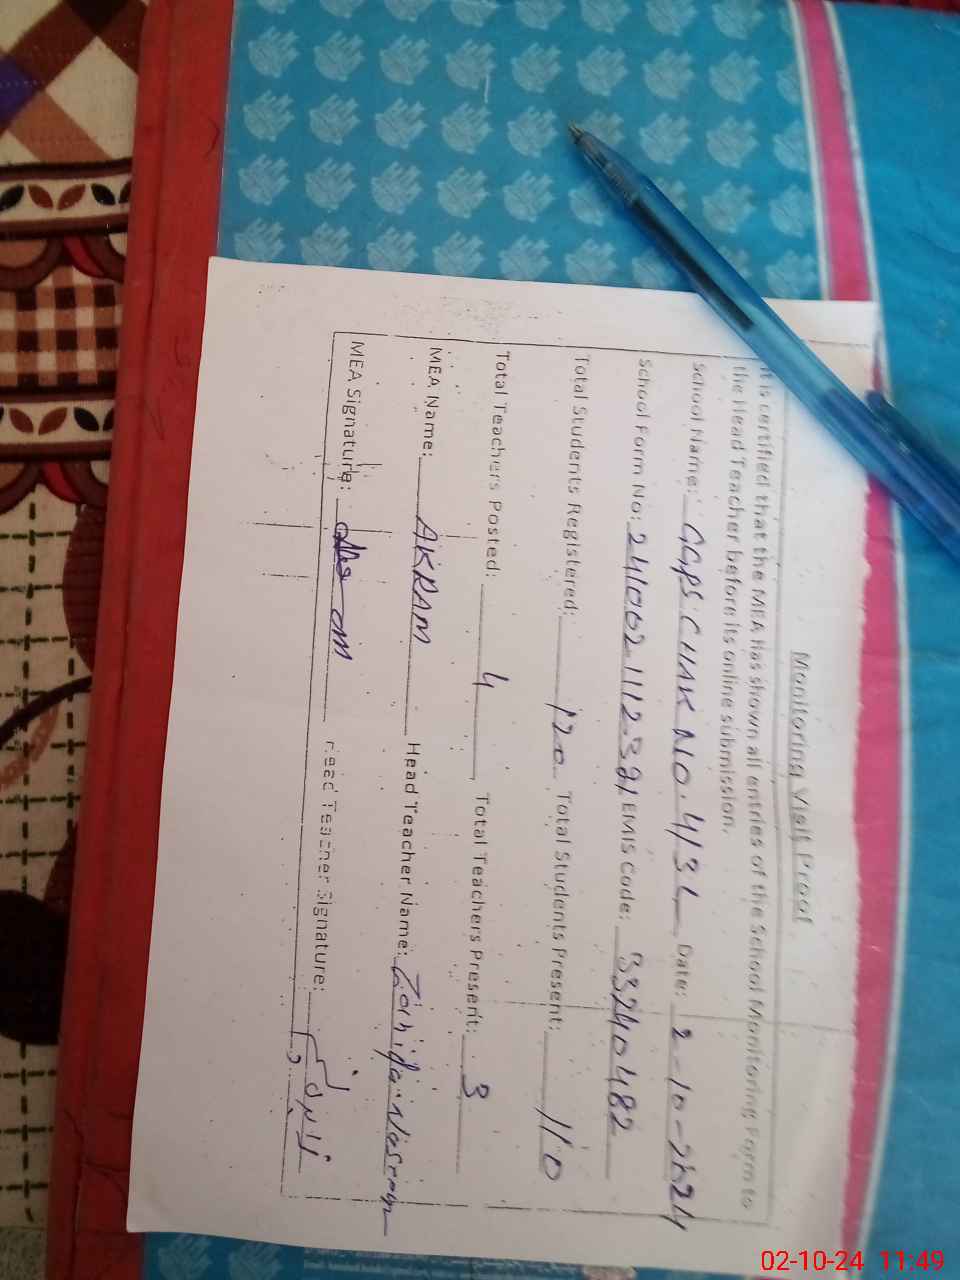 Monitoring Visit Proof
It is certified that the MEA has shown all entries of the School Monitoring Form to
the Head Teacher before its online submission.
School Name: GGPS CHAK NO. 413 L Date: 2-10-2024
School Form No: 241002111232 EMIS Code: 33240482
Total Students Registered: 120 Total Students Present: 110
Total Teachers Posted: 4 Total Teachers Present: 3
MEA Name: AKRAM Head Teacher Name: Zahida
MEA Signature: Head Teacher Signature:
02-10-24 11:49